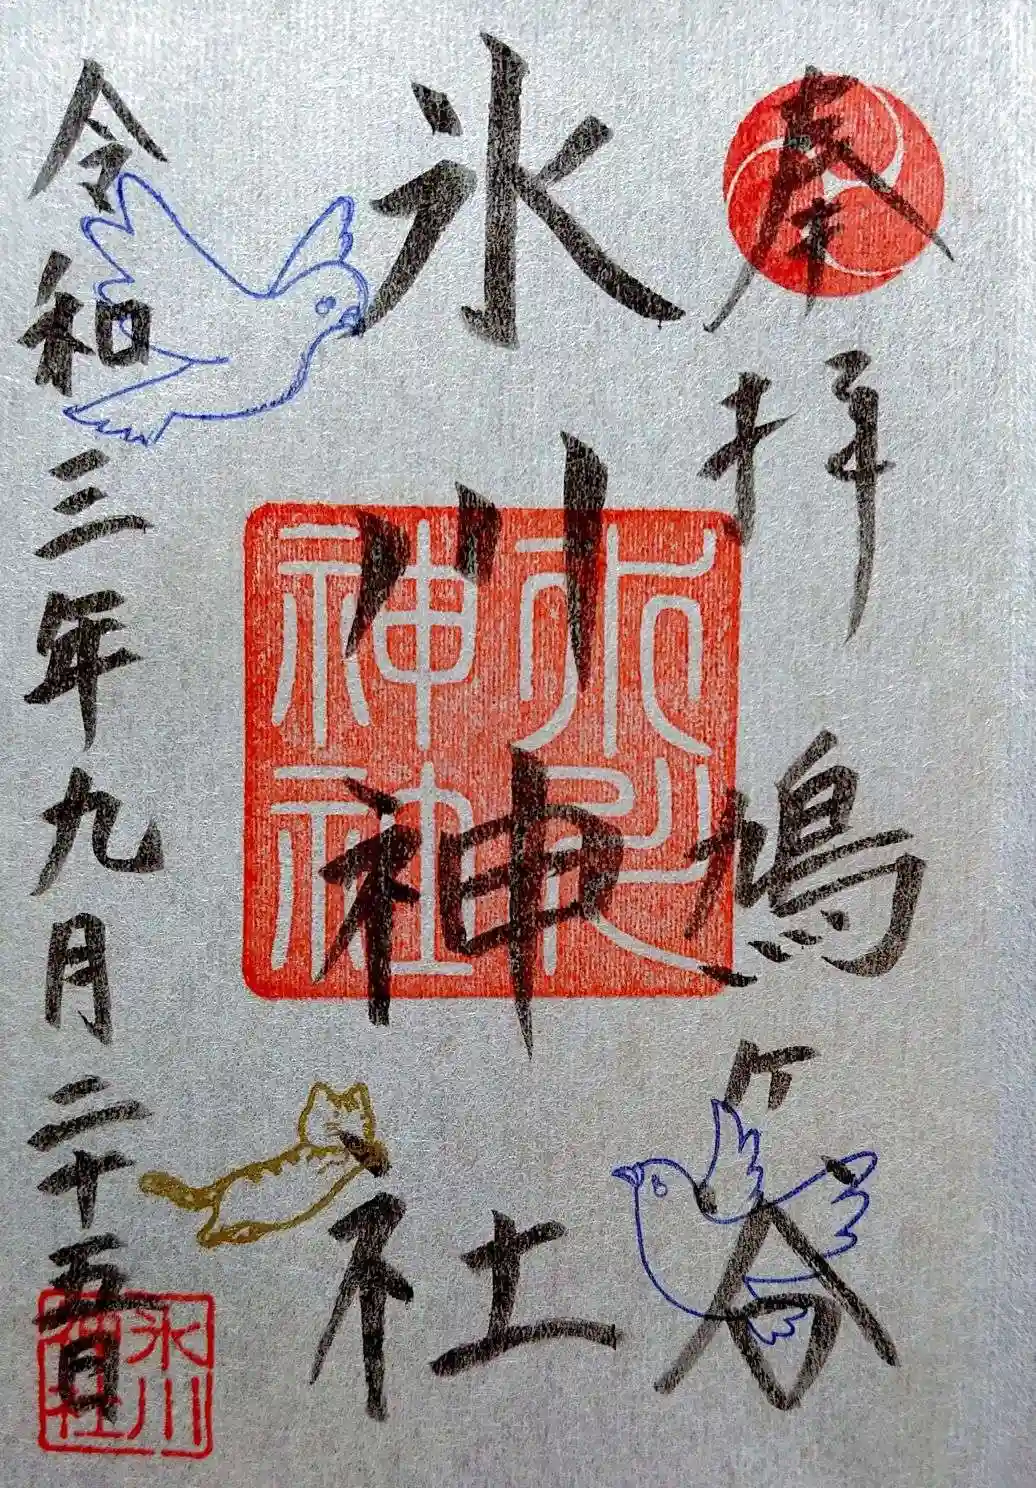 奉拝　鳩ヶ谷
氷川神社
令和三年九月二十五日
氷川
神社
氷川
神社